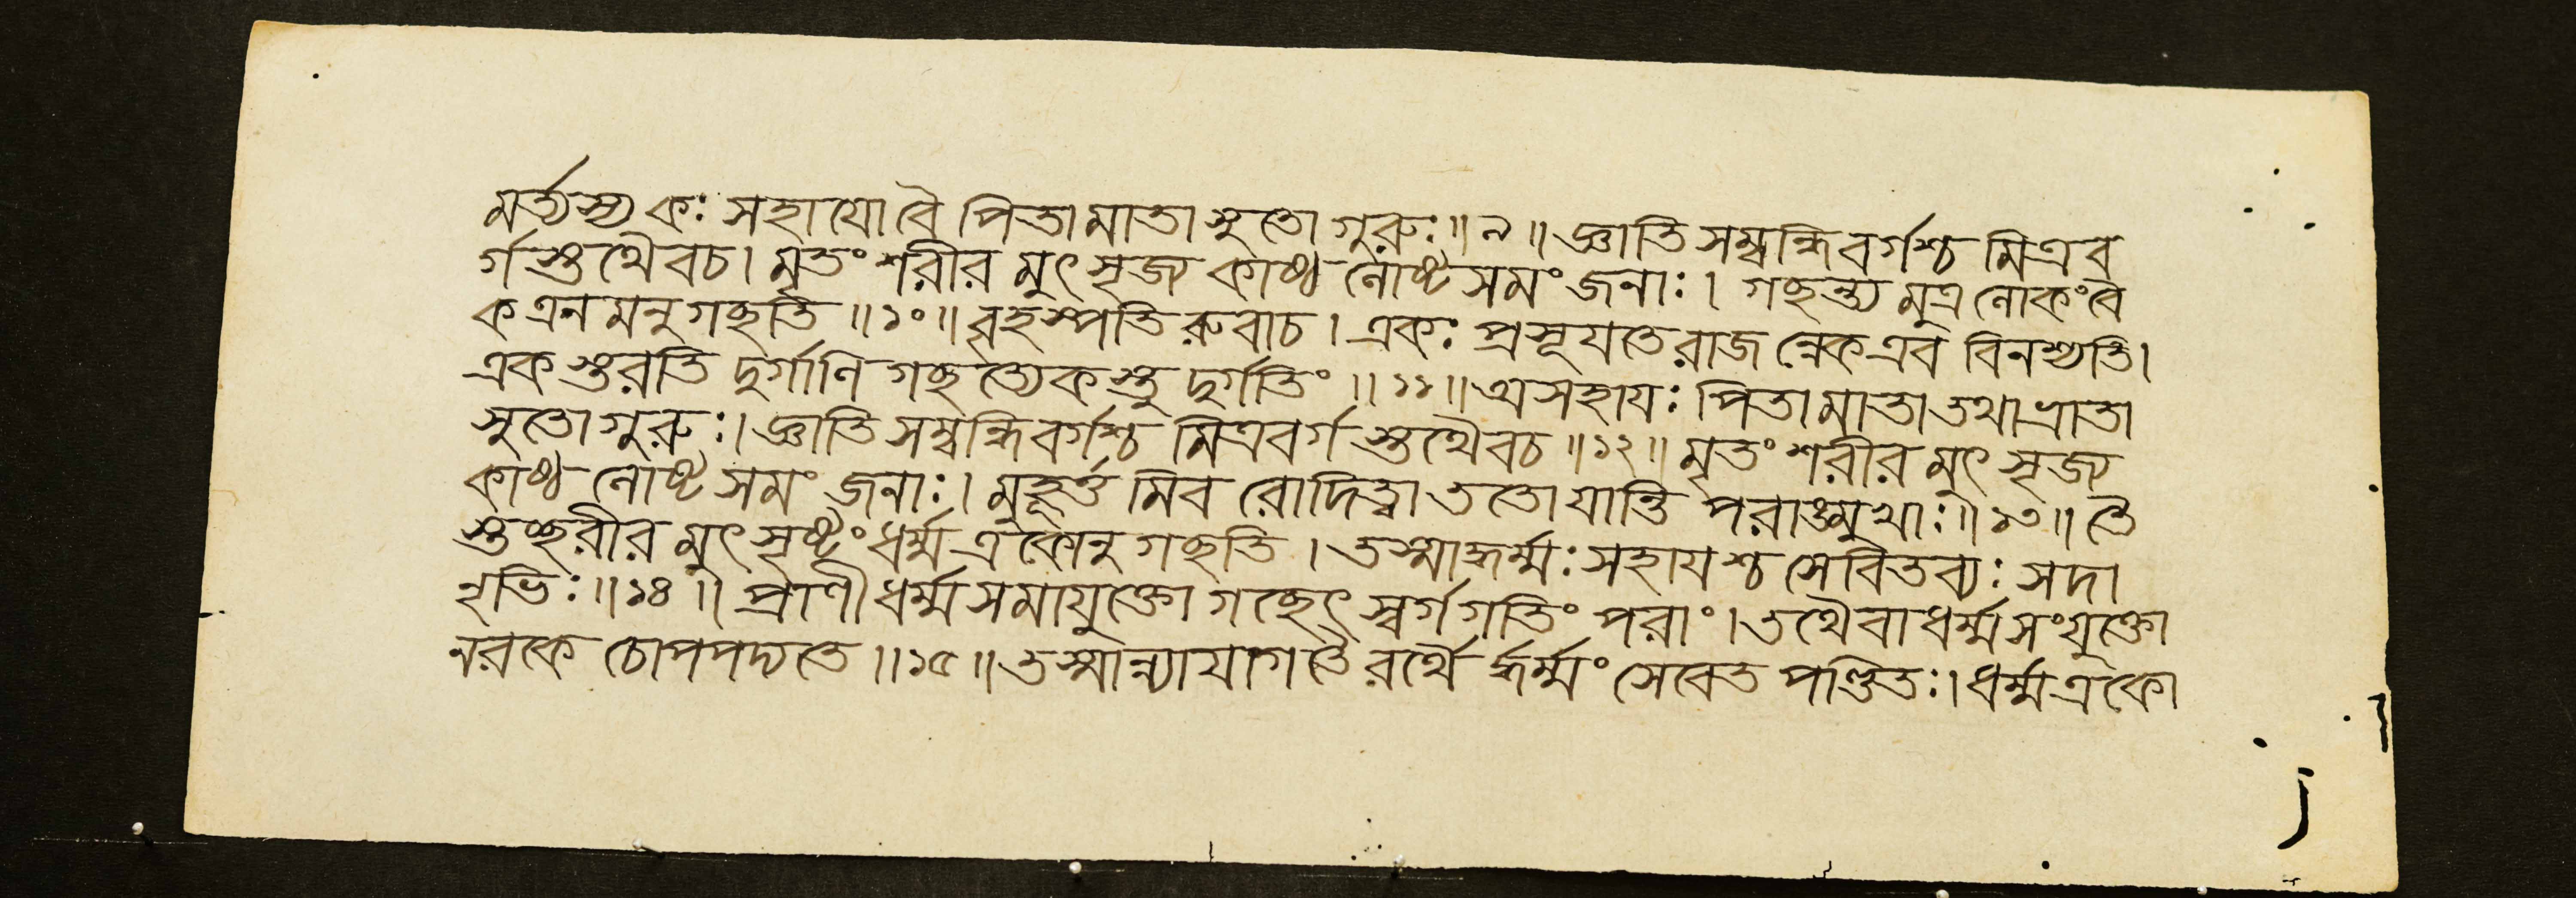 মর্ত্যস্য কঃ সহাযো বৈ পিতা মাতা সুতো গুরুঃ॥৯॥ জ্ঞাতিসম্বন্ধিবর্গশ্চ মিত্রব
র্গস্তথৈবচ। মৃতং শরীরমুৎসৃজ্য কাষ্ঠলোষ্টসমং জনাঃ। গচ্ছন্ত্যমুত্রলোকং বৈ
ক এনমনুগচ্ছতি॥১০॥ বৃহস্পতিরুবাচ। একঃ প্রসূযতে রাজন্নেক এব বিনশ্যতি।
একস্তরতি দুর্গাণি গচ্ছত্যেকস্তু দুর্গতিং॥১১॥ অসহাযঃ পিতা মাতা তথা ভ্রাতা
সুতো গুরুঃ। জ্ঞাতিসম্বন্ধিবর্গশ্চ মিত্রবর্গস্তথৈবচ॥১২॥ মৃতং শরীরমুৎসৃজ্য
কাষ্ঠলোষ্টসমং জনাঃ। মুহূর্ত্তমিব রোদিত্বা ততো যান্তি পরাঙ্মুখাঃ॥১৩॥ তৈ
স্তচ্ছরীরমুৎসৃষ্টং ধর্ম্ম একোনুগচ্ছতি। তস্মাদ্ধর্ম্মঃ সহাযশ্চ সেবিতব্যঃ সদা
নৃভিঃ॥১৪॥ প্রাণী ধর্ম্মসমাযুক্তো গচ্ছেৎ স্বর্গগতিং পরাং। তথৈবাধর্ম্মসংযুক্তো
নরকে চোপপদ্যতে॥১৫॥ তস্মান্ন্যাযাগতৈরর্থৈর্দ্ধর্ম্মং সেবেত পণ্ডিতঃ। ধর্ম্ম একো